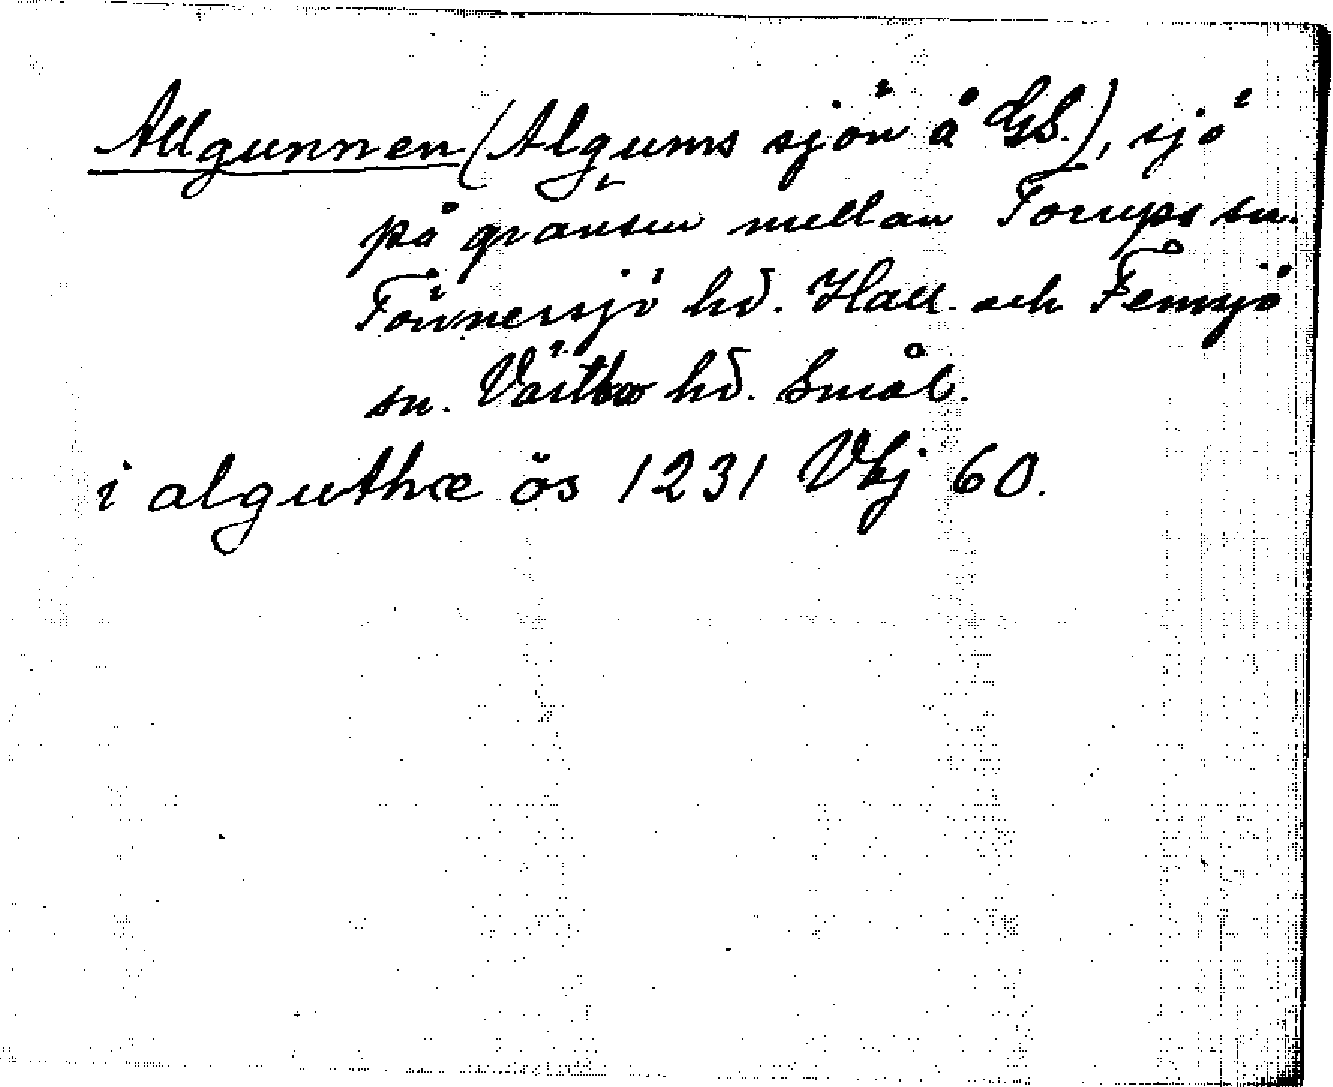 Allgunnen (Algums sjön å GS.), sjö
på gränsen mellan Torups sn.
Tönnersjö hd. Hall. och Femsjö
sn. Västbo hd. Smål.
i alguthæ ös 1231 Vkj 60.